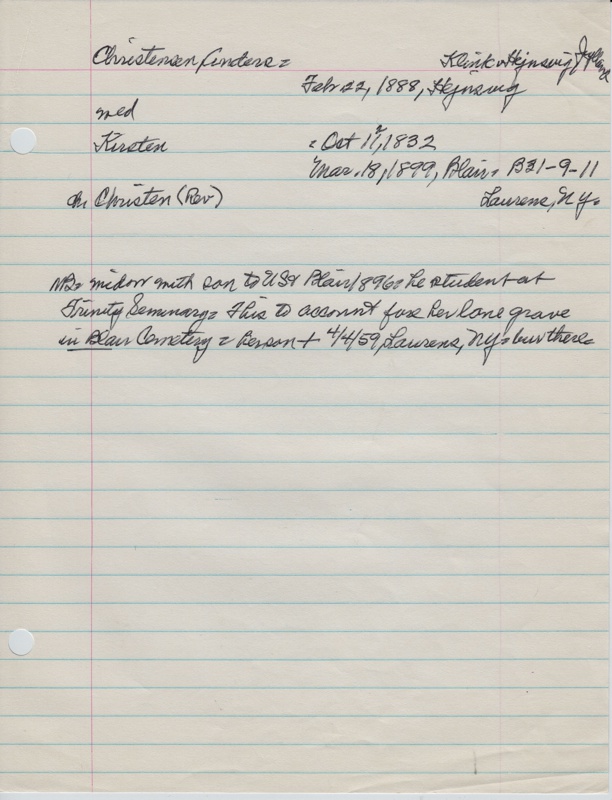 Christensen Anders = Klink Hejnsvig,
Feb 22, 1888, Hejnsvig
med
Kirsten = Oct 17, 1832
Mar. 18, 1899, Blair = B31-9-11
ch. Christen (Rev) Laurens, NY.
NB = widow with son to USA Blair 1896 = he student at
Trinity Seminary = This to account for her lone grave
in Blair Cemetery = her son + 4/4/59, Laurens, NY = bur there =